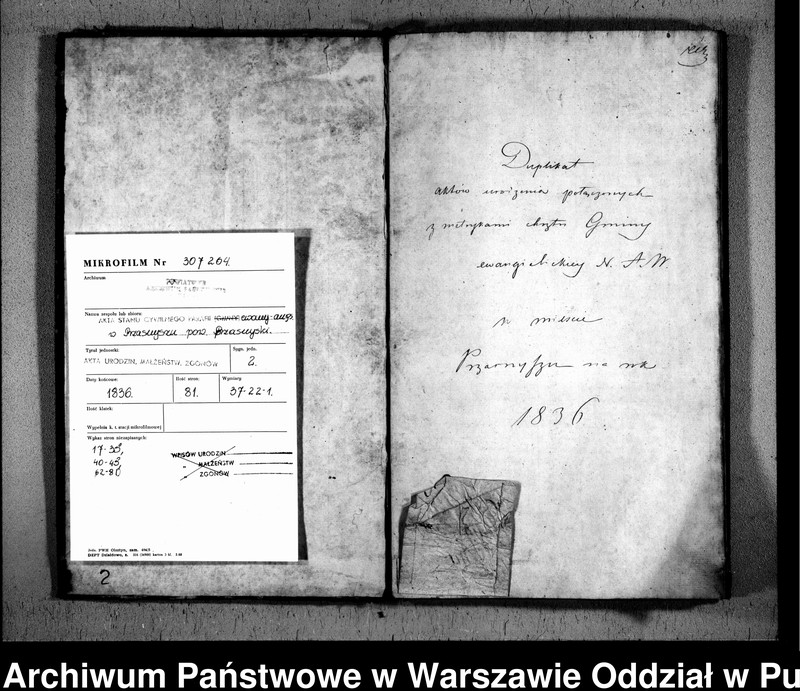 MIKROFILM Nr 307204
Archiwum
Nazwa zespołu lub zbioru
AKTA STANU CYWILNEGO ewang-augs.
w Przasnyszu pow. Przasnyski.
Tytuł jednostki
Sygn. jedn.
AKTA URODZIN, MAŁŻEŃSTW, ZGONÓW
2.
Daty końcowe:
Ilość stron:
Wymiary
1836.
81.
37-22-1.
Ilość klatek:
Wypełnia k. t. stacji mikrofilmowej
Wykaz stron niezapisanych:
17-39,
40-49,
62-80
WPISÓW URODZIN
" MAŁŻEŃSTW
" ZGONÓW
2
Duplikat
aktów urodzenia połączonych
z metrykami chztu Gminy
ewangielickiey N. A. W.
w miescie
Przasnyszu na rok
1836
Archiwum Państwowe w Warszawie Oddział w Pu